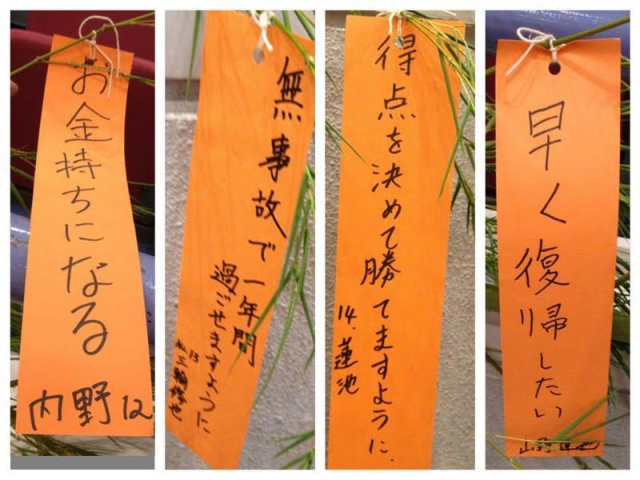 お金持ちになる
内野12
無事故で一年間
過ごせますように
13
得点を決めて勝てますように.
14.蓮池
早く復帰したい